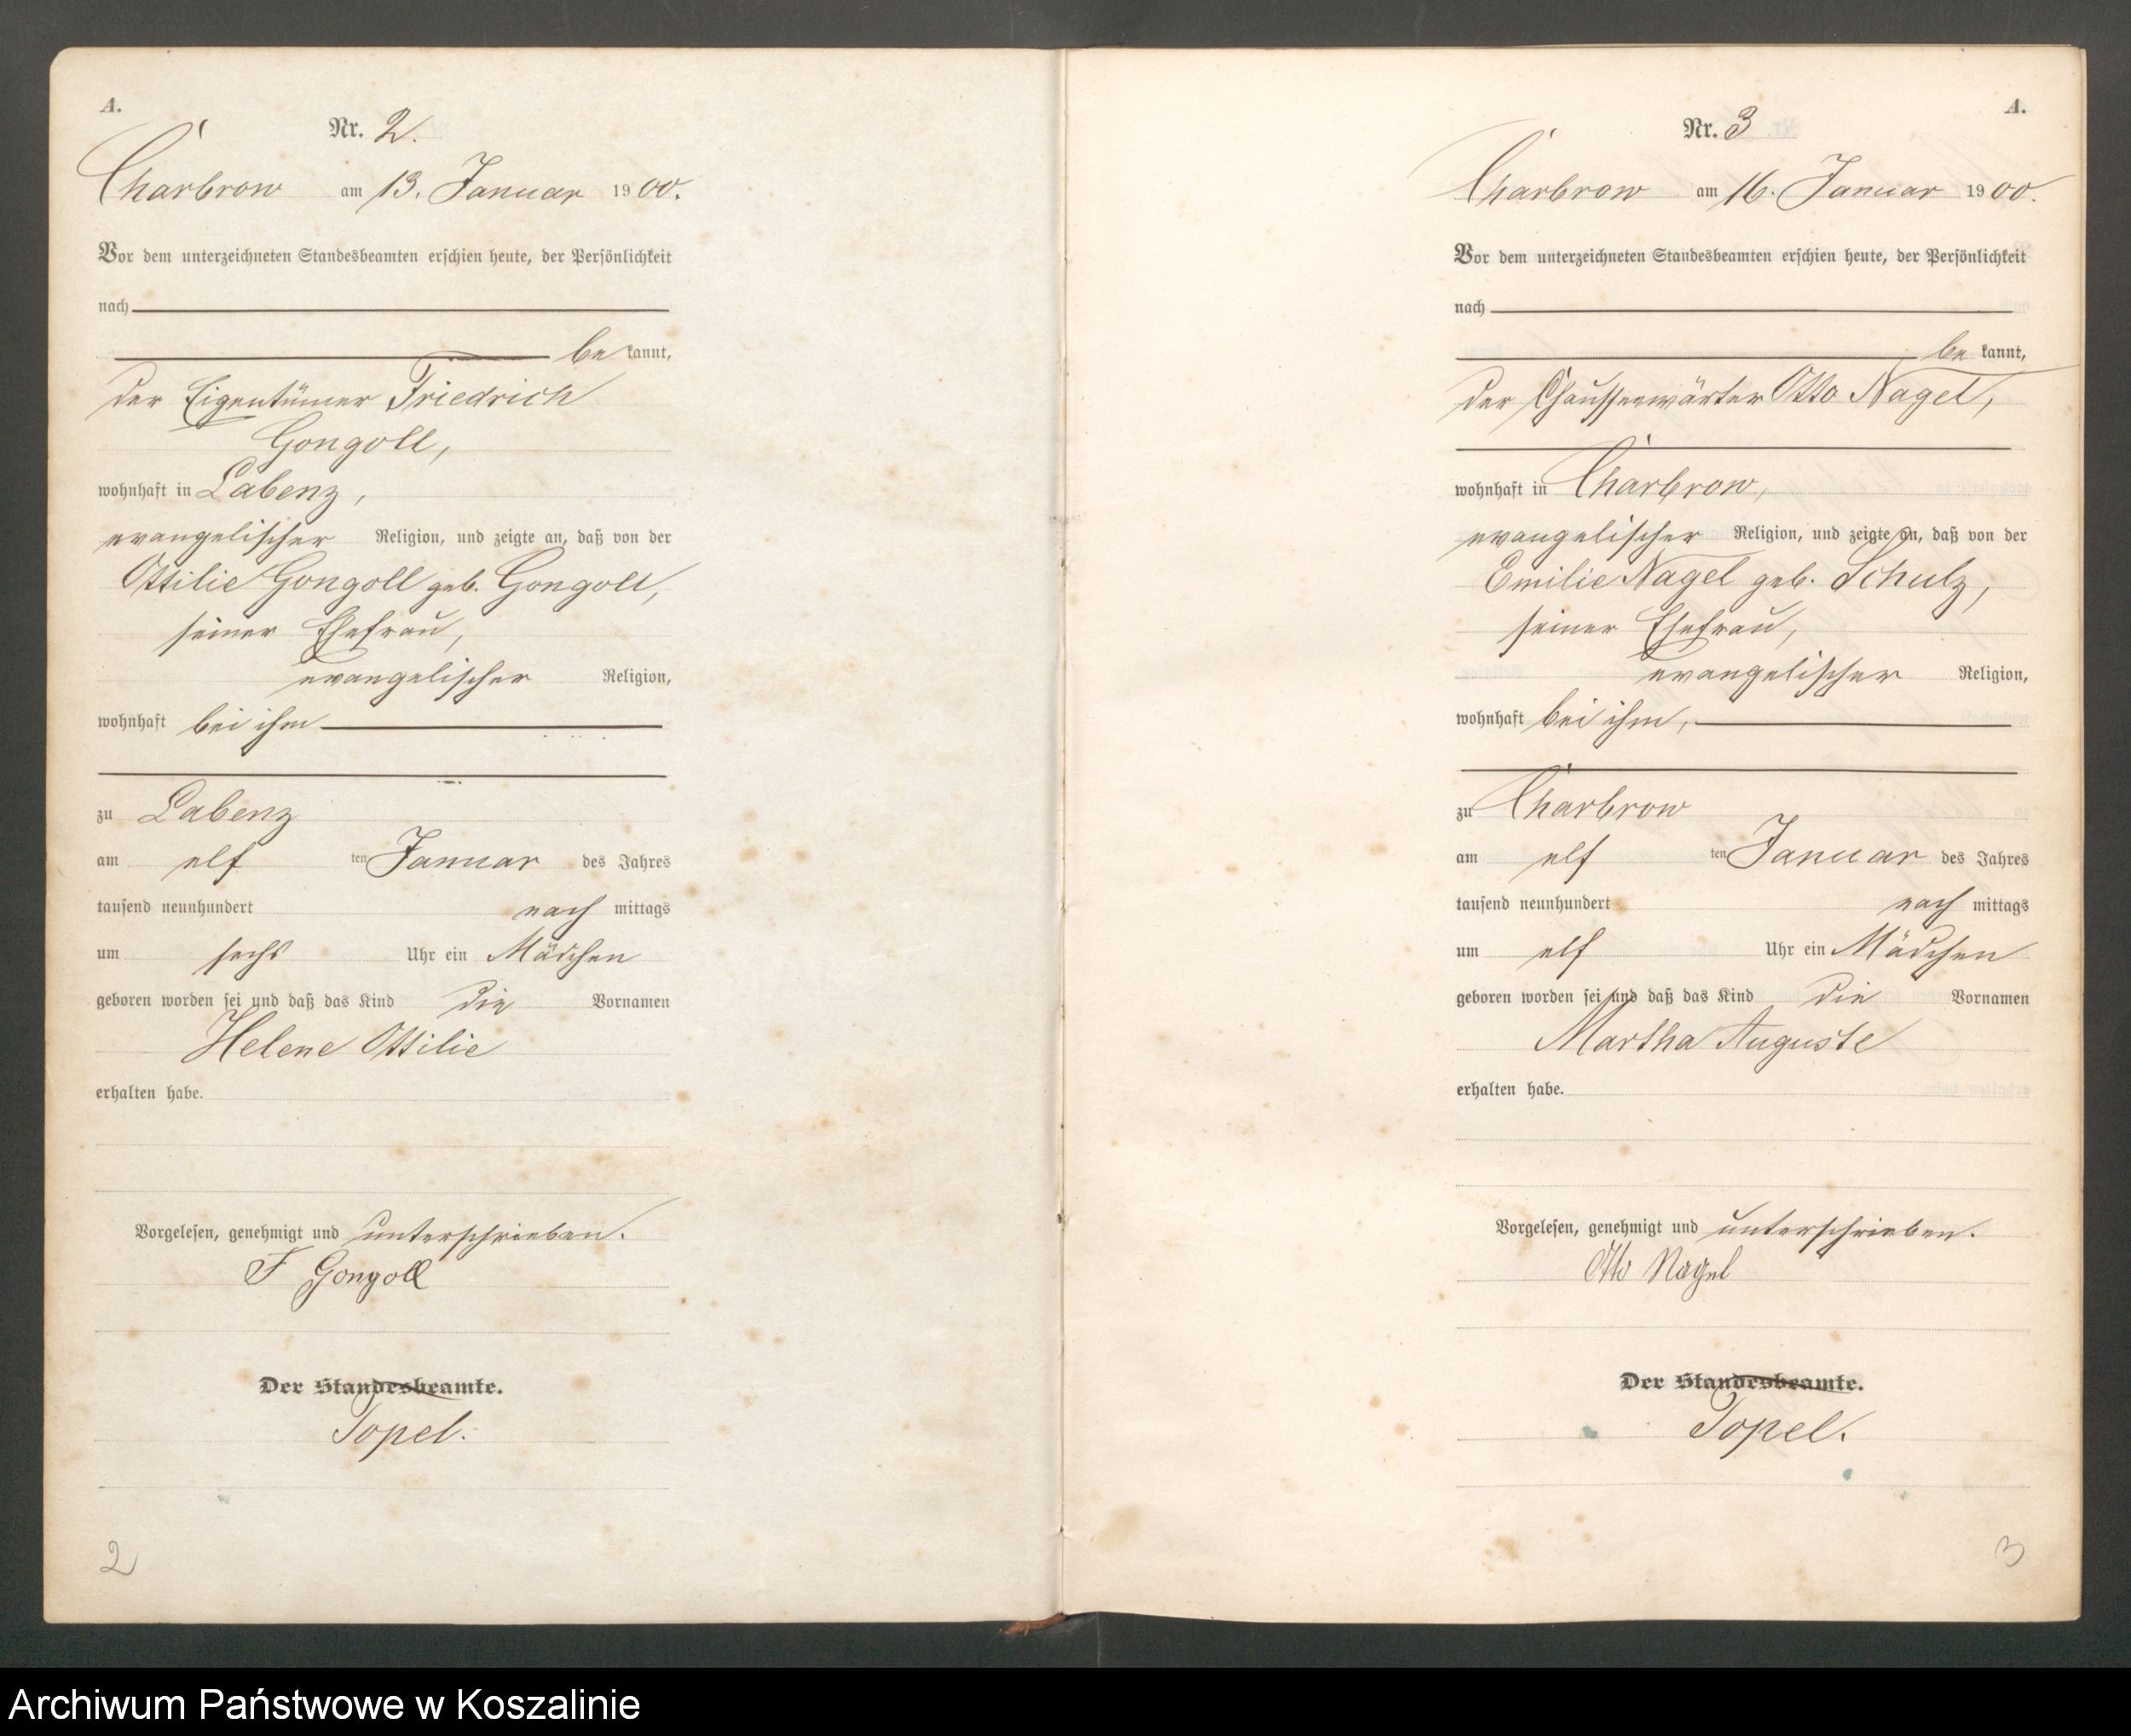 A.
Nr. 2.
Charbrow am 13. Januar 1900.
Vor dem unterzeichneten Standesbeamten erschien heute, der Persönlichkeit
nach
be kannt,
der Eigentümer Friedrich
Gongoll,
wohnhaft in Labenz,
evangelischer Religion, und zeigte an, daß von der
Ottilie Gongoll geb. Gongoll,
seiner Ehefrau,
evangelischer Religion,
wohnhaft bei ihm
zu Labenz
am elf ten Januar des Jahres
tausend neunhundert nach mittags
um sechs Uhr ein Mädchen
geboren worden sei und daß das Kind die Vornamen
Helene Ottilie
erhalten habe.
Vorgelesen, genehmigt und unterschrieben.
F Gongoll
Der Standesbeamte.
Topel.
2
A.
Nr. 3
Charbrow am 16. Januar 1900.
Vor dem unterzeichneten Standesbeamten erschien heute, der Persönlichkeit
nach
be kannt,
der Chausseewärter Otto Nagel,
wohnhaft in Charbrow,
evangelischer Religion, und zeigte an, daß von der
Emilie Nagel geb. Schulz,
seiner Ehefrau,
evangelischer Religion,
wohnhaft bei ihm,
zu Charbrow
am elf ten Januar des Jahres
tausend neunhundert nach mittags
um elf Uhr ein Mädchen
geboren worden sei und daß das Kind die Vornamen
Martha Auguste
erhalten habe.
Vorgelesen, genehmigt und unterschrieben.
Otto Nagel
Der Standesbeamte.
Topel.
3
Archiwum Państwowe w Koszalinie